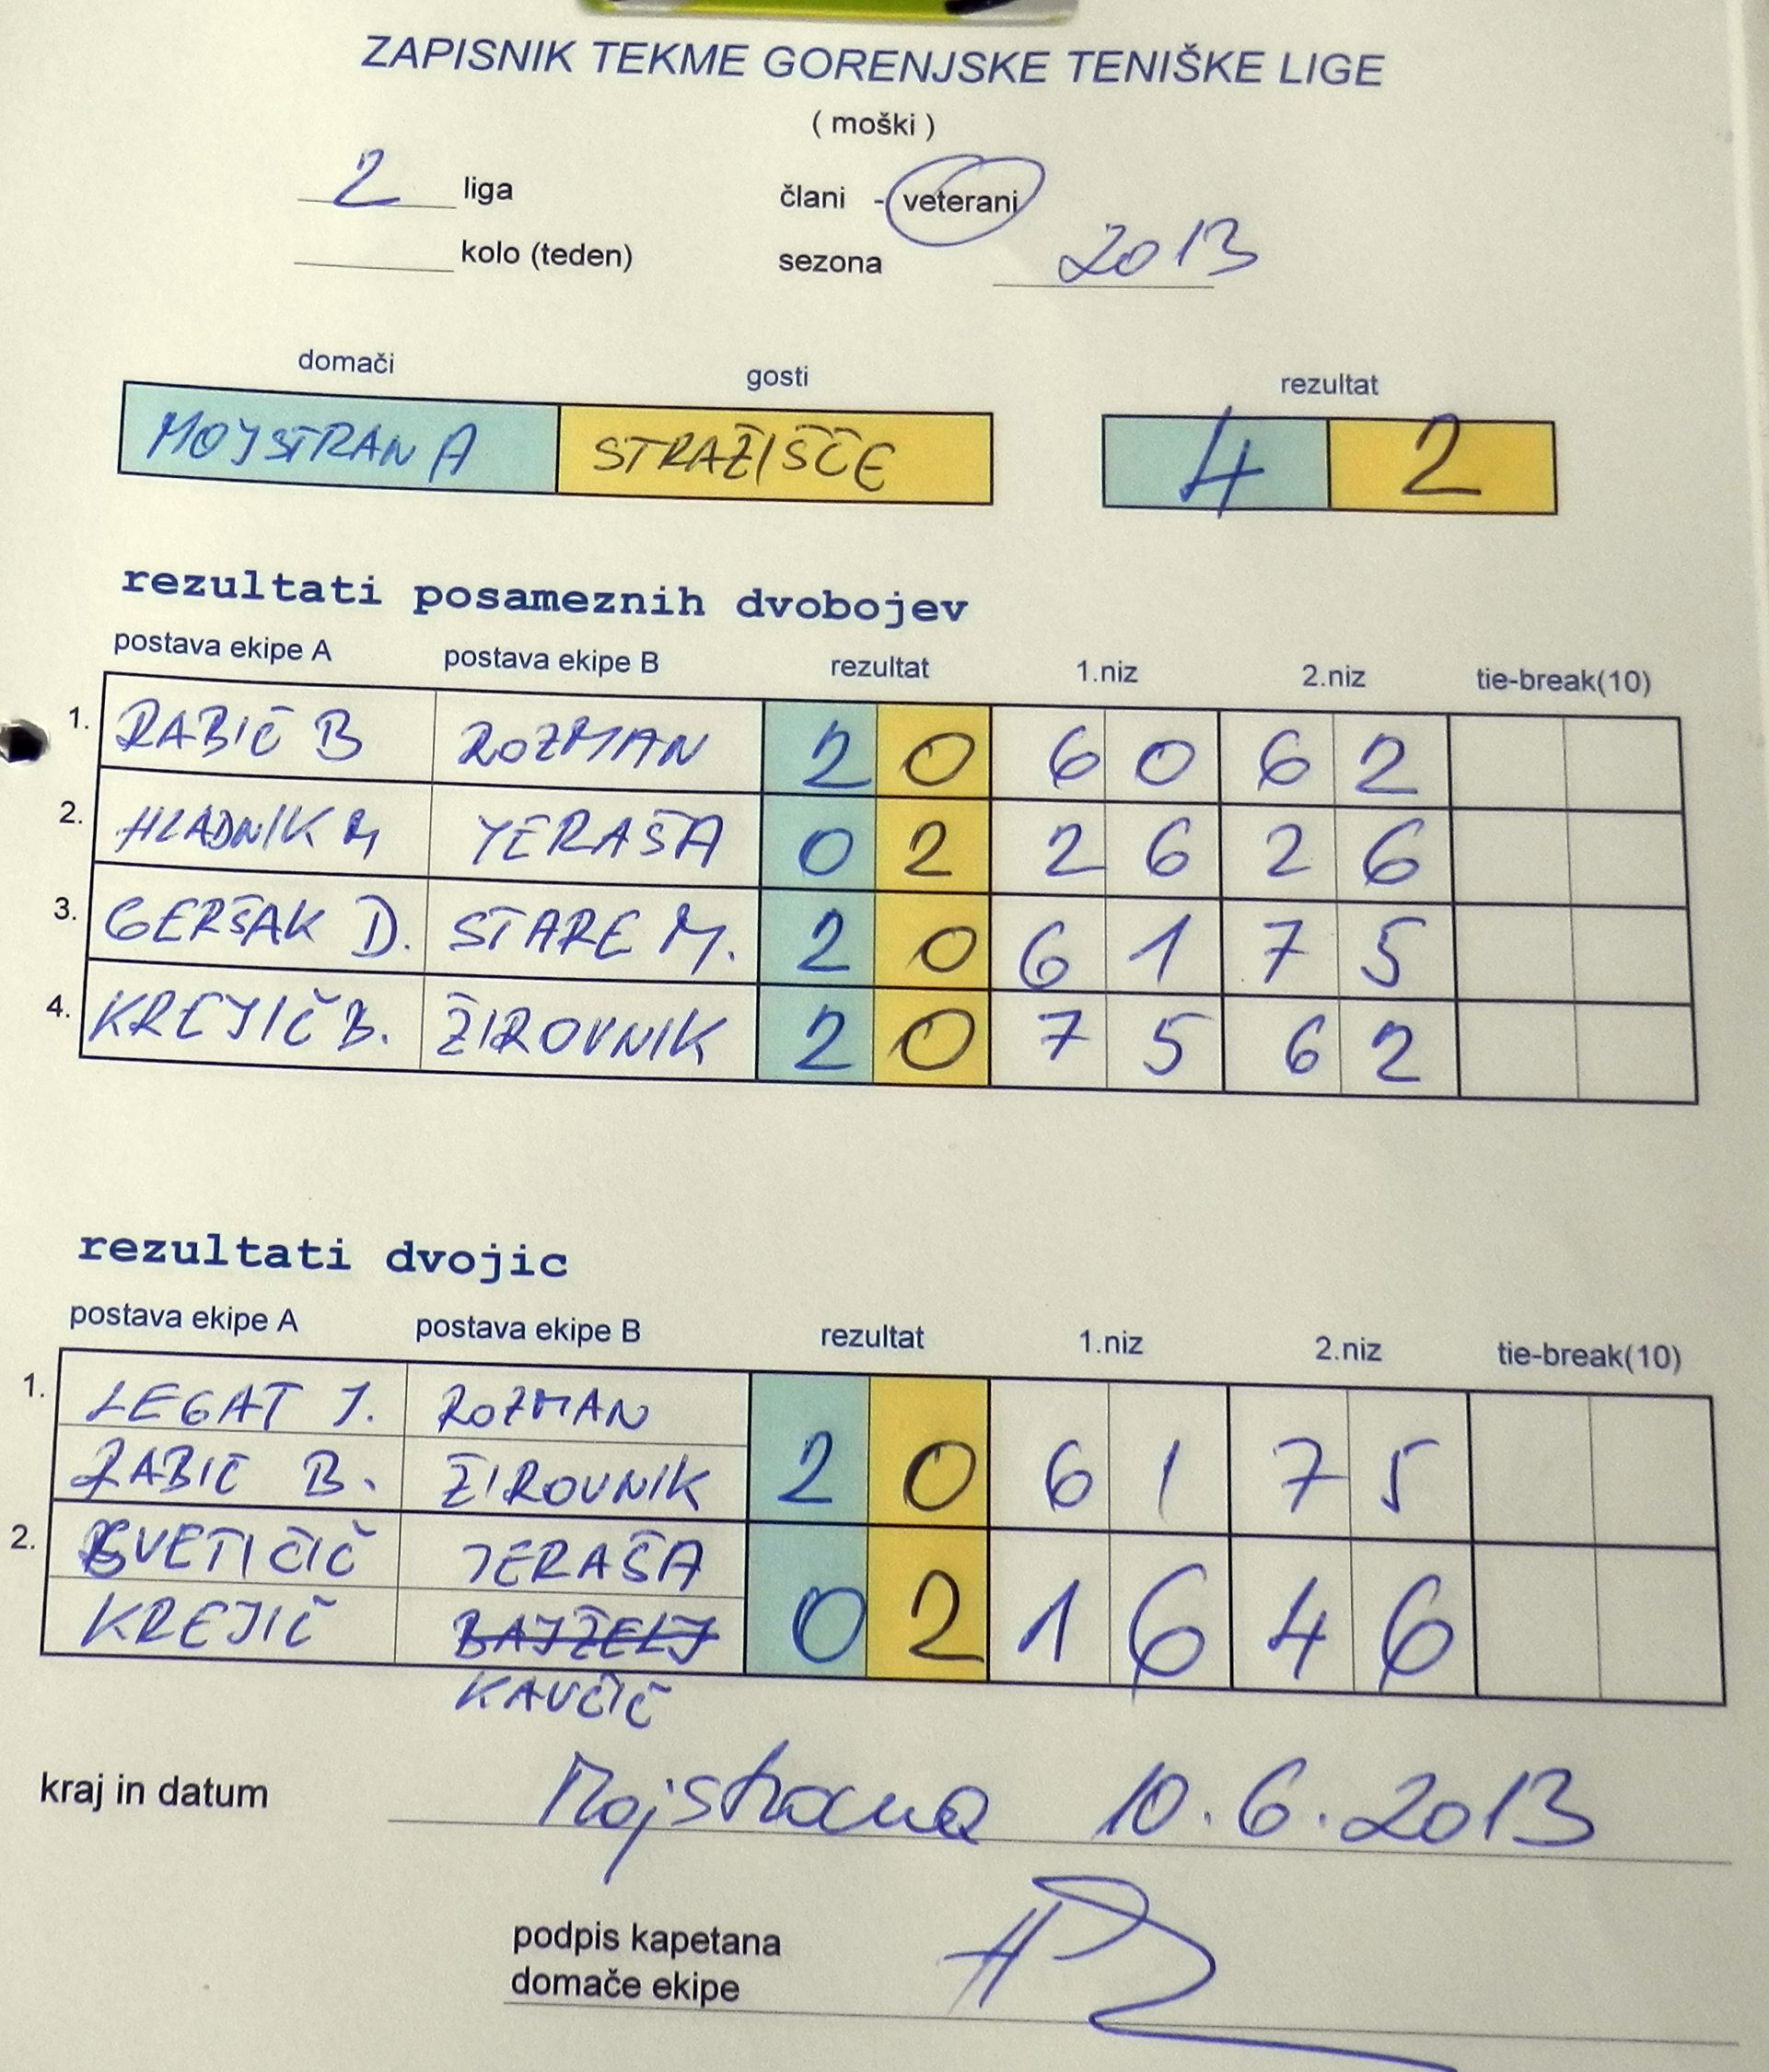 ZAPISNIK TEKME GORENJSKE TENIŠKE LIGE
( moški )
2 liga člani - veterani
kolo (teden) sezona 2013
domači gosti rezultat
MOJSTRANA STRAŽIŠČE 4 2
rezultati posameznih dvobojev
postava ekipe A postava ekipe B rezultat 1.niz 2.niz tie-break(10)
1. RABIČ B ROZMAN 2 0 6 0 6 2
2. HLADNIK M JERAŠA 0 2 2 6 2 6
3. GERŠAK D. STARE M. 2 0 6 1 7 5
4. KREJIČ B. ŽIROVNIK 2 0 7 5 6 2
rezultati dvojic
postava ekipe A postava ekipe B rezultat 1.niz 2.niz tie-break(10)
1. LEGAT J. ROZMAN
RABIČ B. ŽIROVNIK 2 0 6 1 7 5
2. SVETIČIČ JERAŠA
KREJIČ BAJŽELJ 0 2 1 6 4 6
KAVČIČ
kraj in datum Mojstrana 10.6.2013
podpis kapetana
domače ekipe